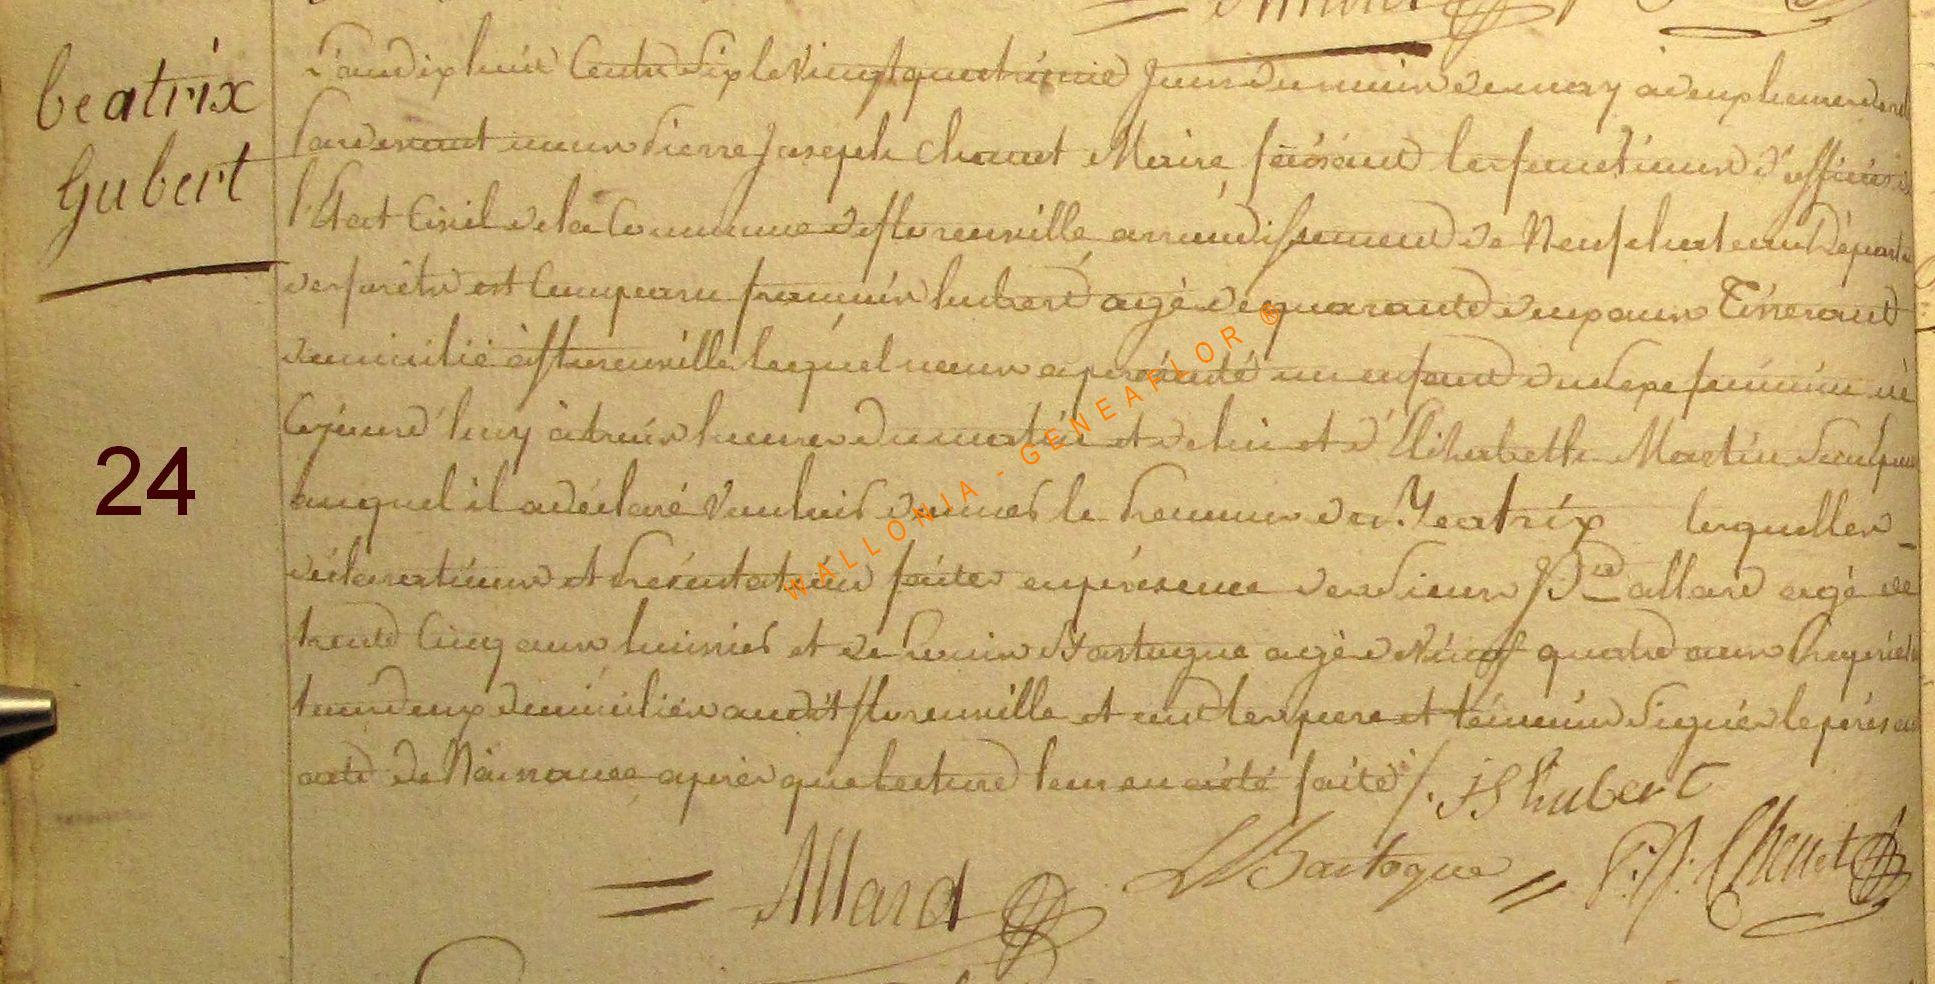 beatrix
hubert
24
L'an dix huit Cent Six le Vingt quatrieme Jour du mois de may à deux heures de rel
Pardevant nous Pierre Joseph Chenet Maire faisant les fonctions d'officier de
l'Etat Civil de la Commune de florenville arrondissement de Neufchateau Départe
des forêts est Comparu francois hubert agé de quarante deux ans Tisserand
domicilié à florenville lequel nous a présenté un enfant du Sexe féminin né
Cejourd'huy à trois heures du matin et de lui et d'Elisabeth Martin Son Epouse
auquel il a déclaré Vouloir donner le Prenom de Beatrix lesquelles
déclarations et Présentation faites en présence des Sieurs allard agé de
trente Cinq ans huissier et de Louis Bartogne agé de Vingt quatre ans Propriét
tous deux domiciliés audit florenville et ont les pere et témoins Signés le présent
acte de Naissance apres que lecture leur en a été faite /. hubert
Allard Bartogne P. J. Chenet
WALLONIA - GENEAFLOR ®